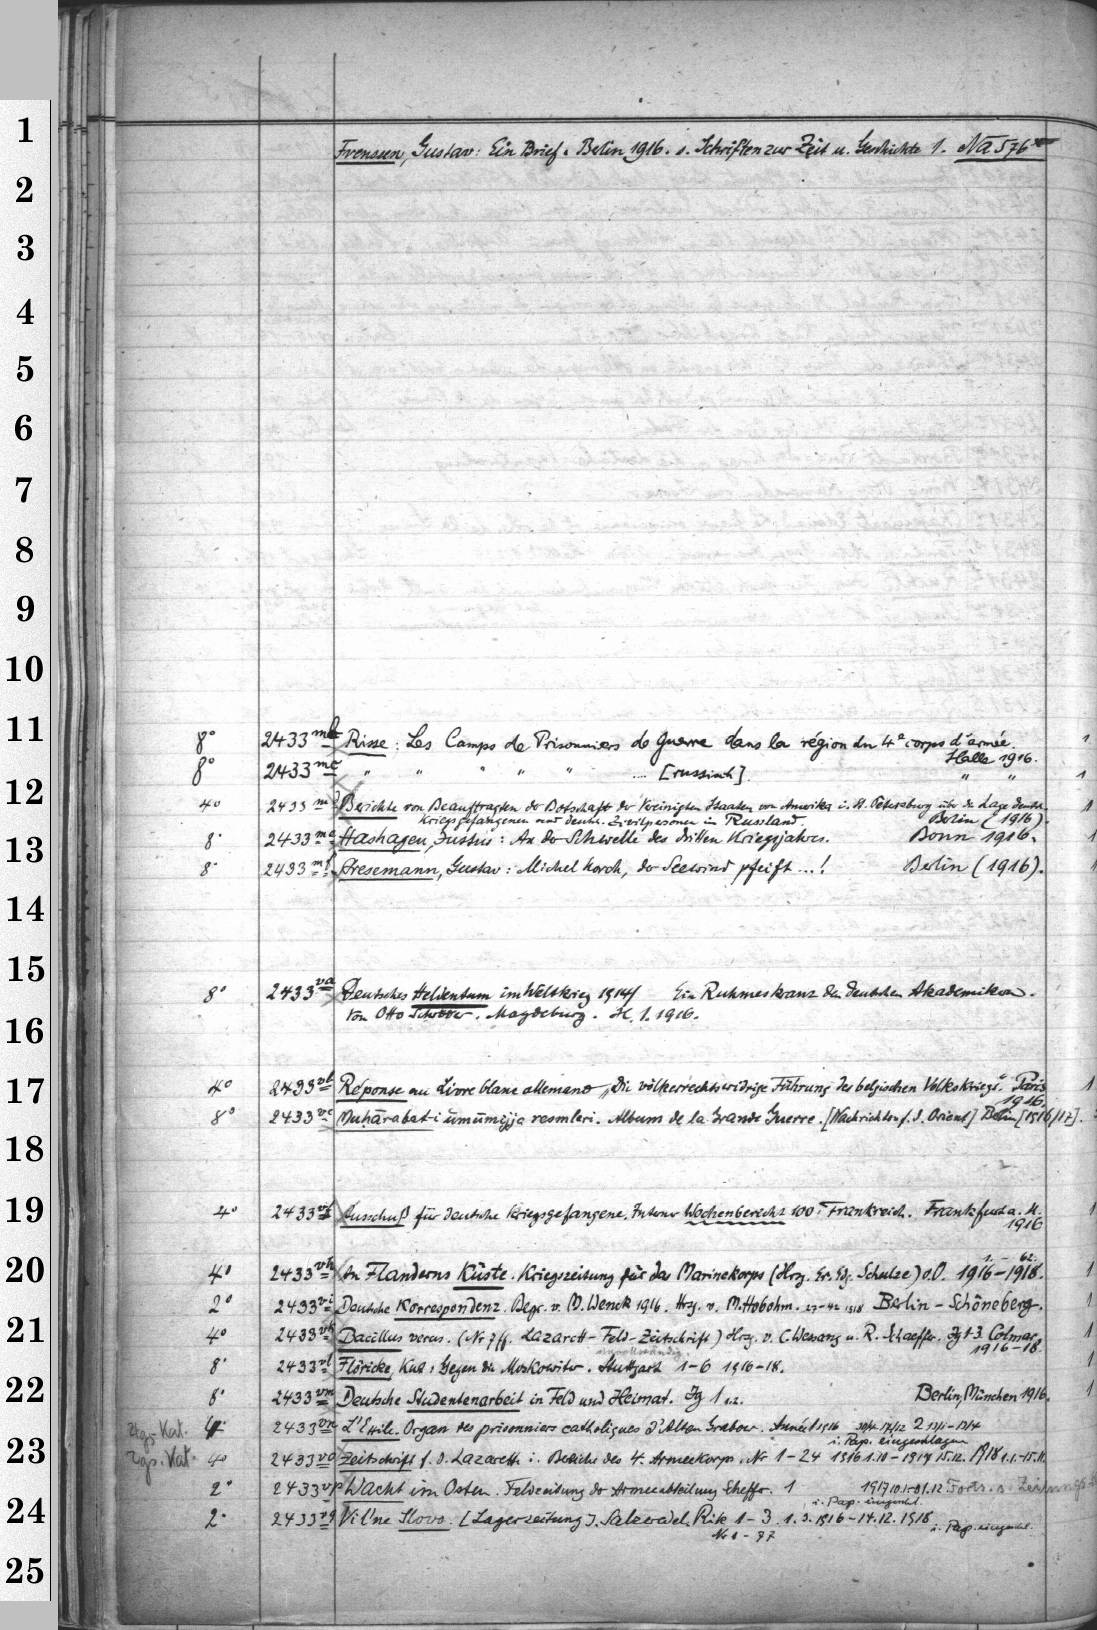 1
2
3
4
5
6
7
8
9
10
11
12
13
14
15
16
17
18
19
20
21
22
23
24
25
Frenssen, Gustav: Ein Brief. Berlin 1916. s. Schriften zur Zeit u. Geschichte 1. Na 576
8° 2433 mb Risse: Les Camps de Prisonniers de Guerre dans la région du 4e corps d'armée. 1
Halle 1916.
8° 2433 mc " " " " " ... [russisch]. " " 1
4° 2433 md Berichte von Beauftragten der Botschaft der Vereinigten Staaten von Amerika i. St. Petersburg über die Lage deutsch. 1
Kriegsgefangenen und deutsch. Zivilpersonen in Russland. Berlin (1916).
8° 2433 me Hashagen, Justus: An der Schwelle des dritten Kriegsjahres. Bonn 1916. 1
8° 2433 mf Stresemann, Gustav: Michel horch, der Seewind pfeift ...! Berlin (1916). 1
8° 2433 va Deutsches Heldentum im Weltkrieg 1914/ Ein Ruhmeskranz den deutschen Akademikern.
von Otto Schröder. Magdeburg. H. 1. 1916.
4° 2433 vb Réponse au Livre blanc allemand „Die völkerrechtswidrige Führung des belgischen Volkskriegs". Paris 1
1916.
8° 2433 vc Muhārabat-i ūmūmijja resmleri. Album de la Grande Guerre. [Nachrichten f. d. Orient] Berlin [1916/17].
4° 2433 vf Ausschuß für deutsche Kriegsgefangene. Wochenbericht 100: Frankreich. Frankfurt a. M. 1
1916
1. - 62.
4° 2433 vh An Flanderns Küste. Kriegszeitung für das Marinekorps (Hrg. Er. Edg. Schulze) o.O. 1916-1918. 1
2° 2433 vi Deutsche Korrespondenz. Begr. v. M. Wenck 1916. Hrg. v. M. Hobohm. 27-42 1918 Berlin-Schöneberg. 1
4° 2433 vk Bacillus verus. (Nr 7ff. Lazarett-Feld-Zeitschrift) Hrg. v. C. Wessang u. R. Schaeffer. Jg 1-3. Colmar 1
1916-18.
unvollständig
8° 2433 vl Flöricke, Kurt: Gegen die Moskowiter. Stuttgart 1-6 1916-18. 1
8° 2433 vm Deutsche Studentenarbeit in Feld und Heimat. Jg 1 Berlin, München 1916. 1
Ztgs-Kat. 4° 2433 vn L'Exile. Organ des prisonniers catholiques d'Alten Grabow. Année 1 1916
i. Pap. eingeschlagen
Ztgs. Kat. 4° 2433 vo Zeitschrift f. d. Lazarett. i. Bereiche des 4. Armeekorps. Nr 1-24 1916 1.10 - 1917 15.12. 1918
2° 2433 vp Wacht im Osten. Feldzeitung der Armeeabteilung Scheffer. 1 1917 Forts. s. Zeitungs-
i. Pap. eingeschl.
2° 2433 vq Vil'ne Slovo. [Lagerzeitung] Salzwedel. Rik 1-3 1. 3. 1916 - 14.12. 1918 i. Pap. eingeschl.
Nr 1 - 77